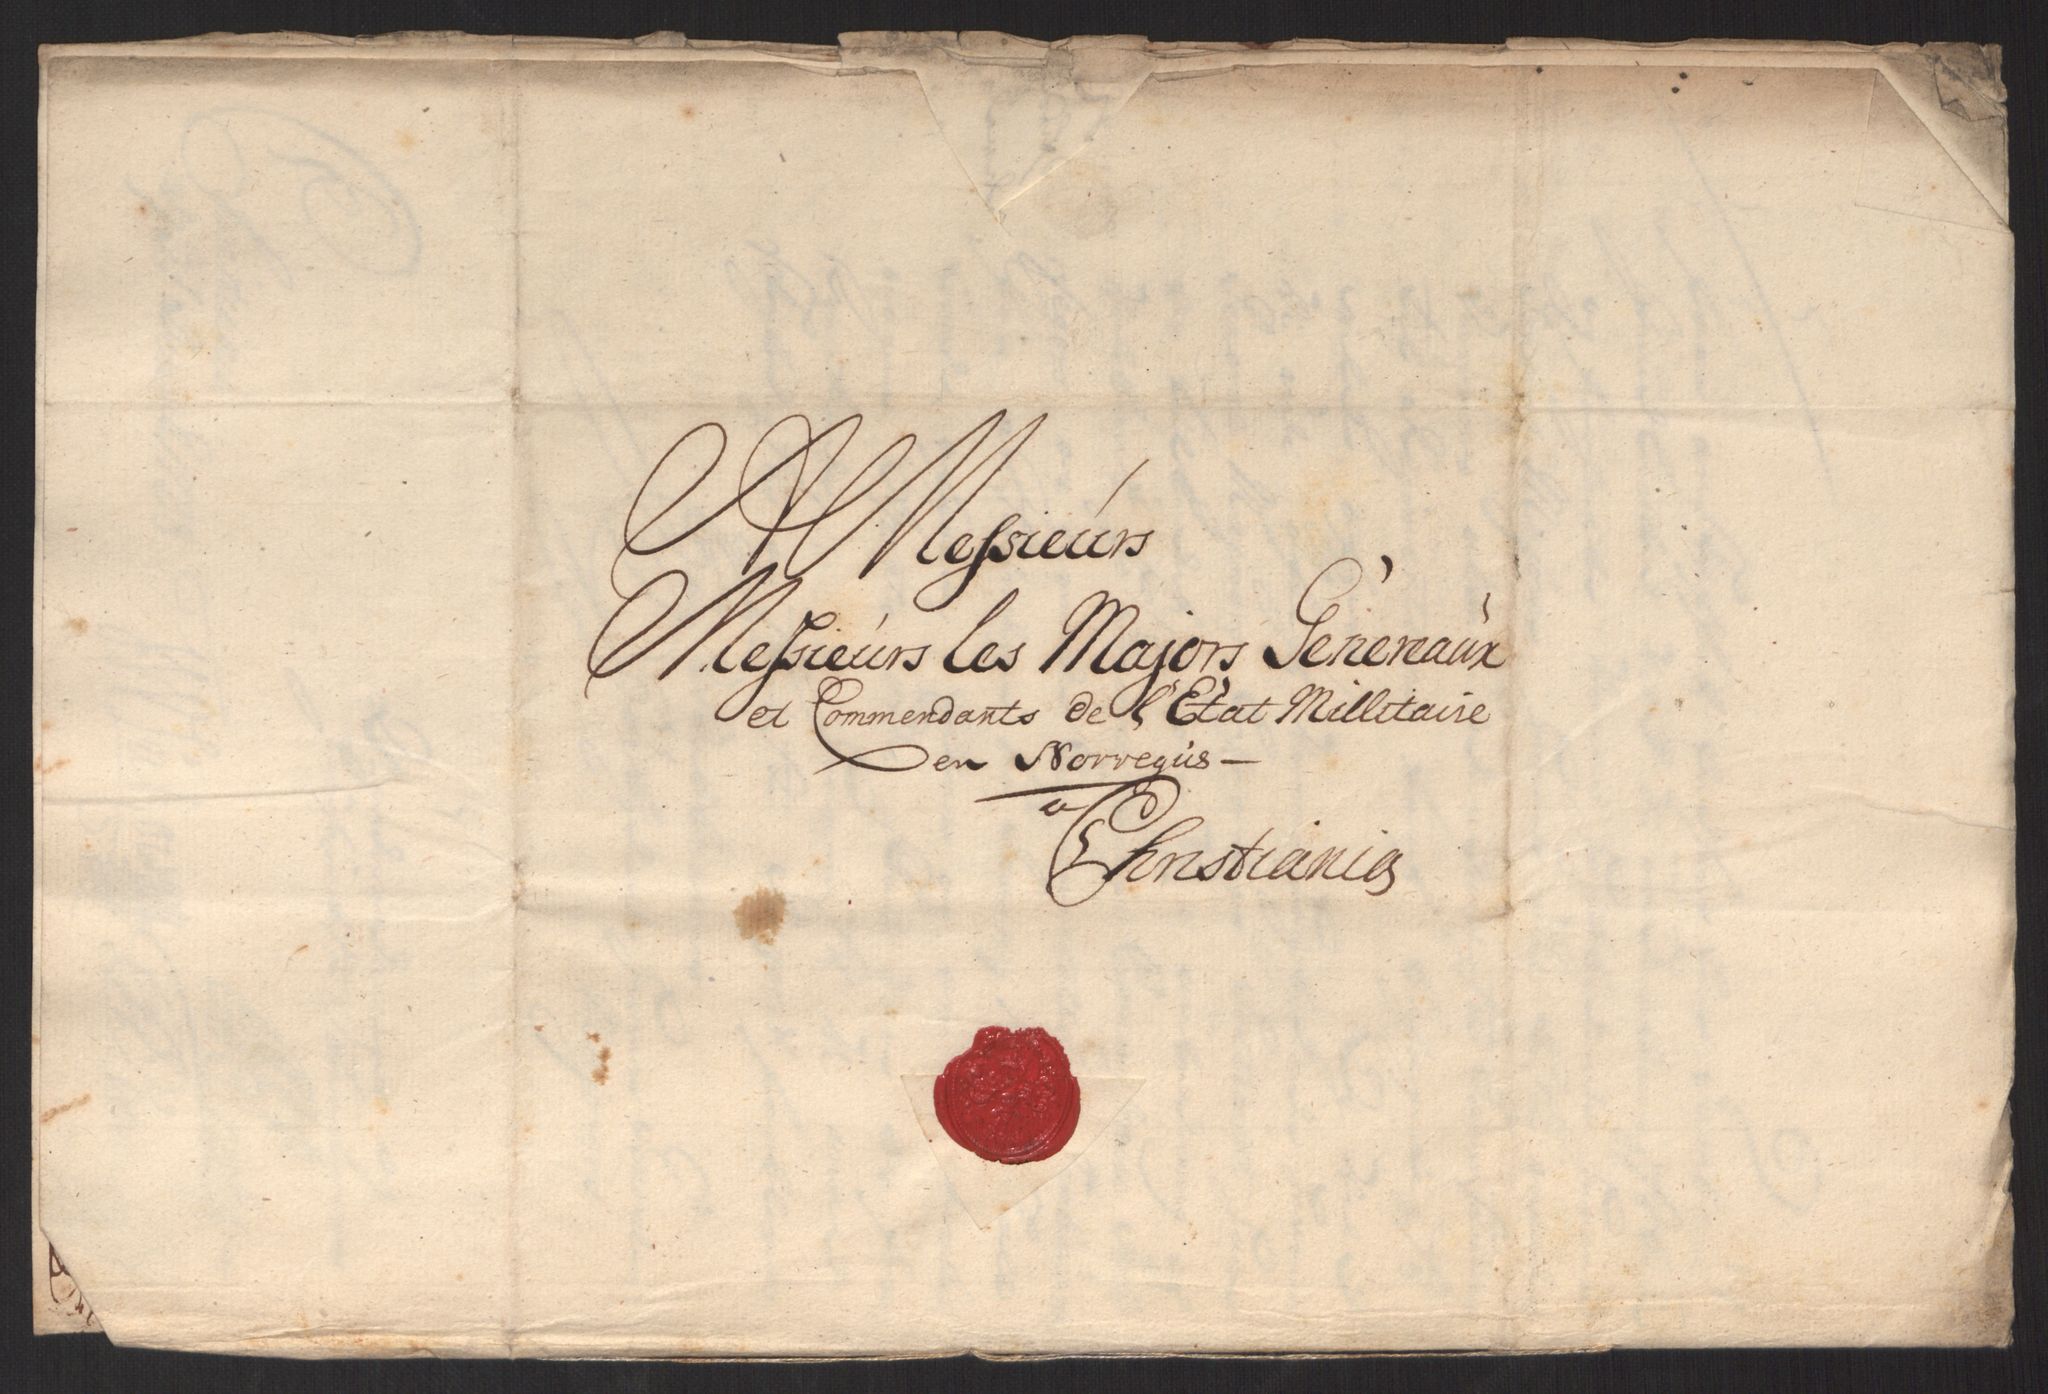 A Messieurs
Messieurs les Majors Génereaux
et Commendants de l'Etat Millitaire
en Norvegús —
a
Christiania